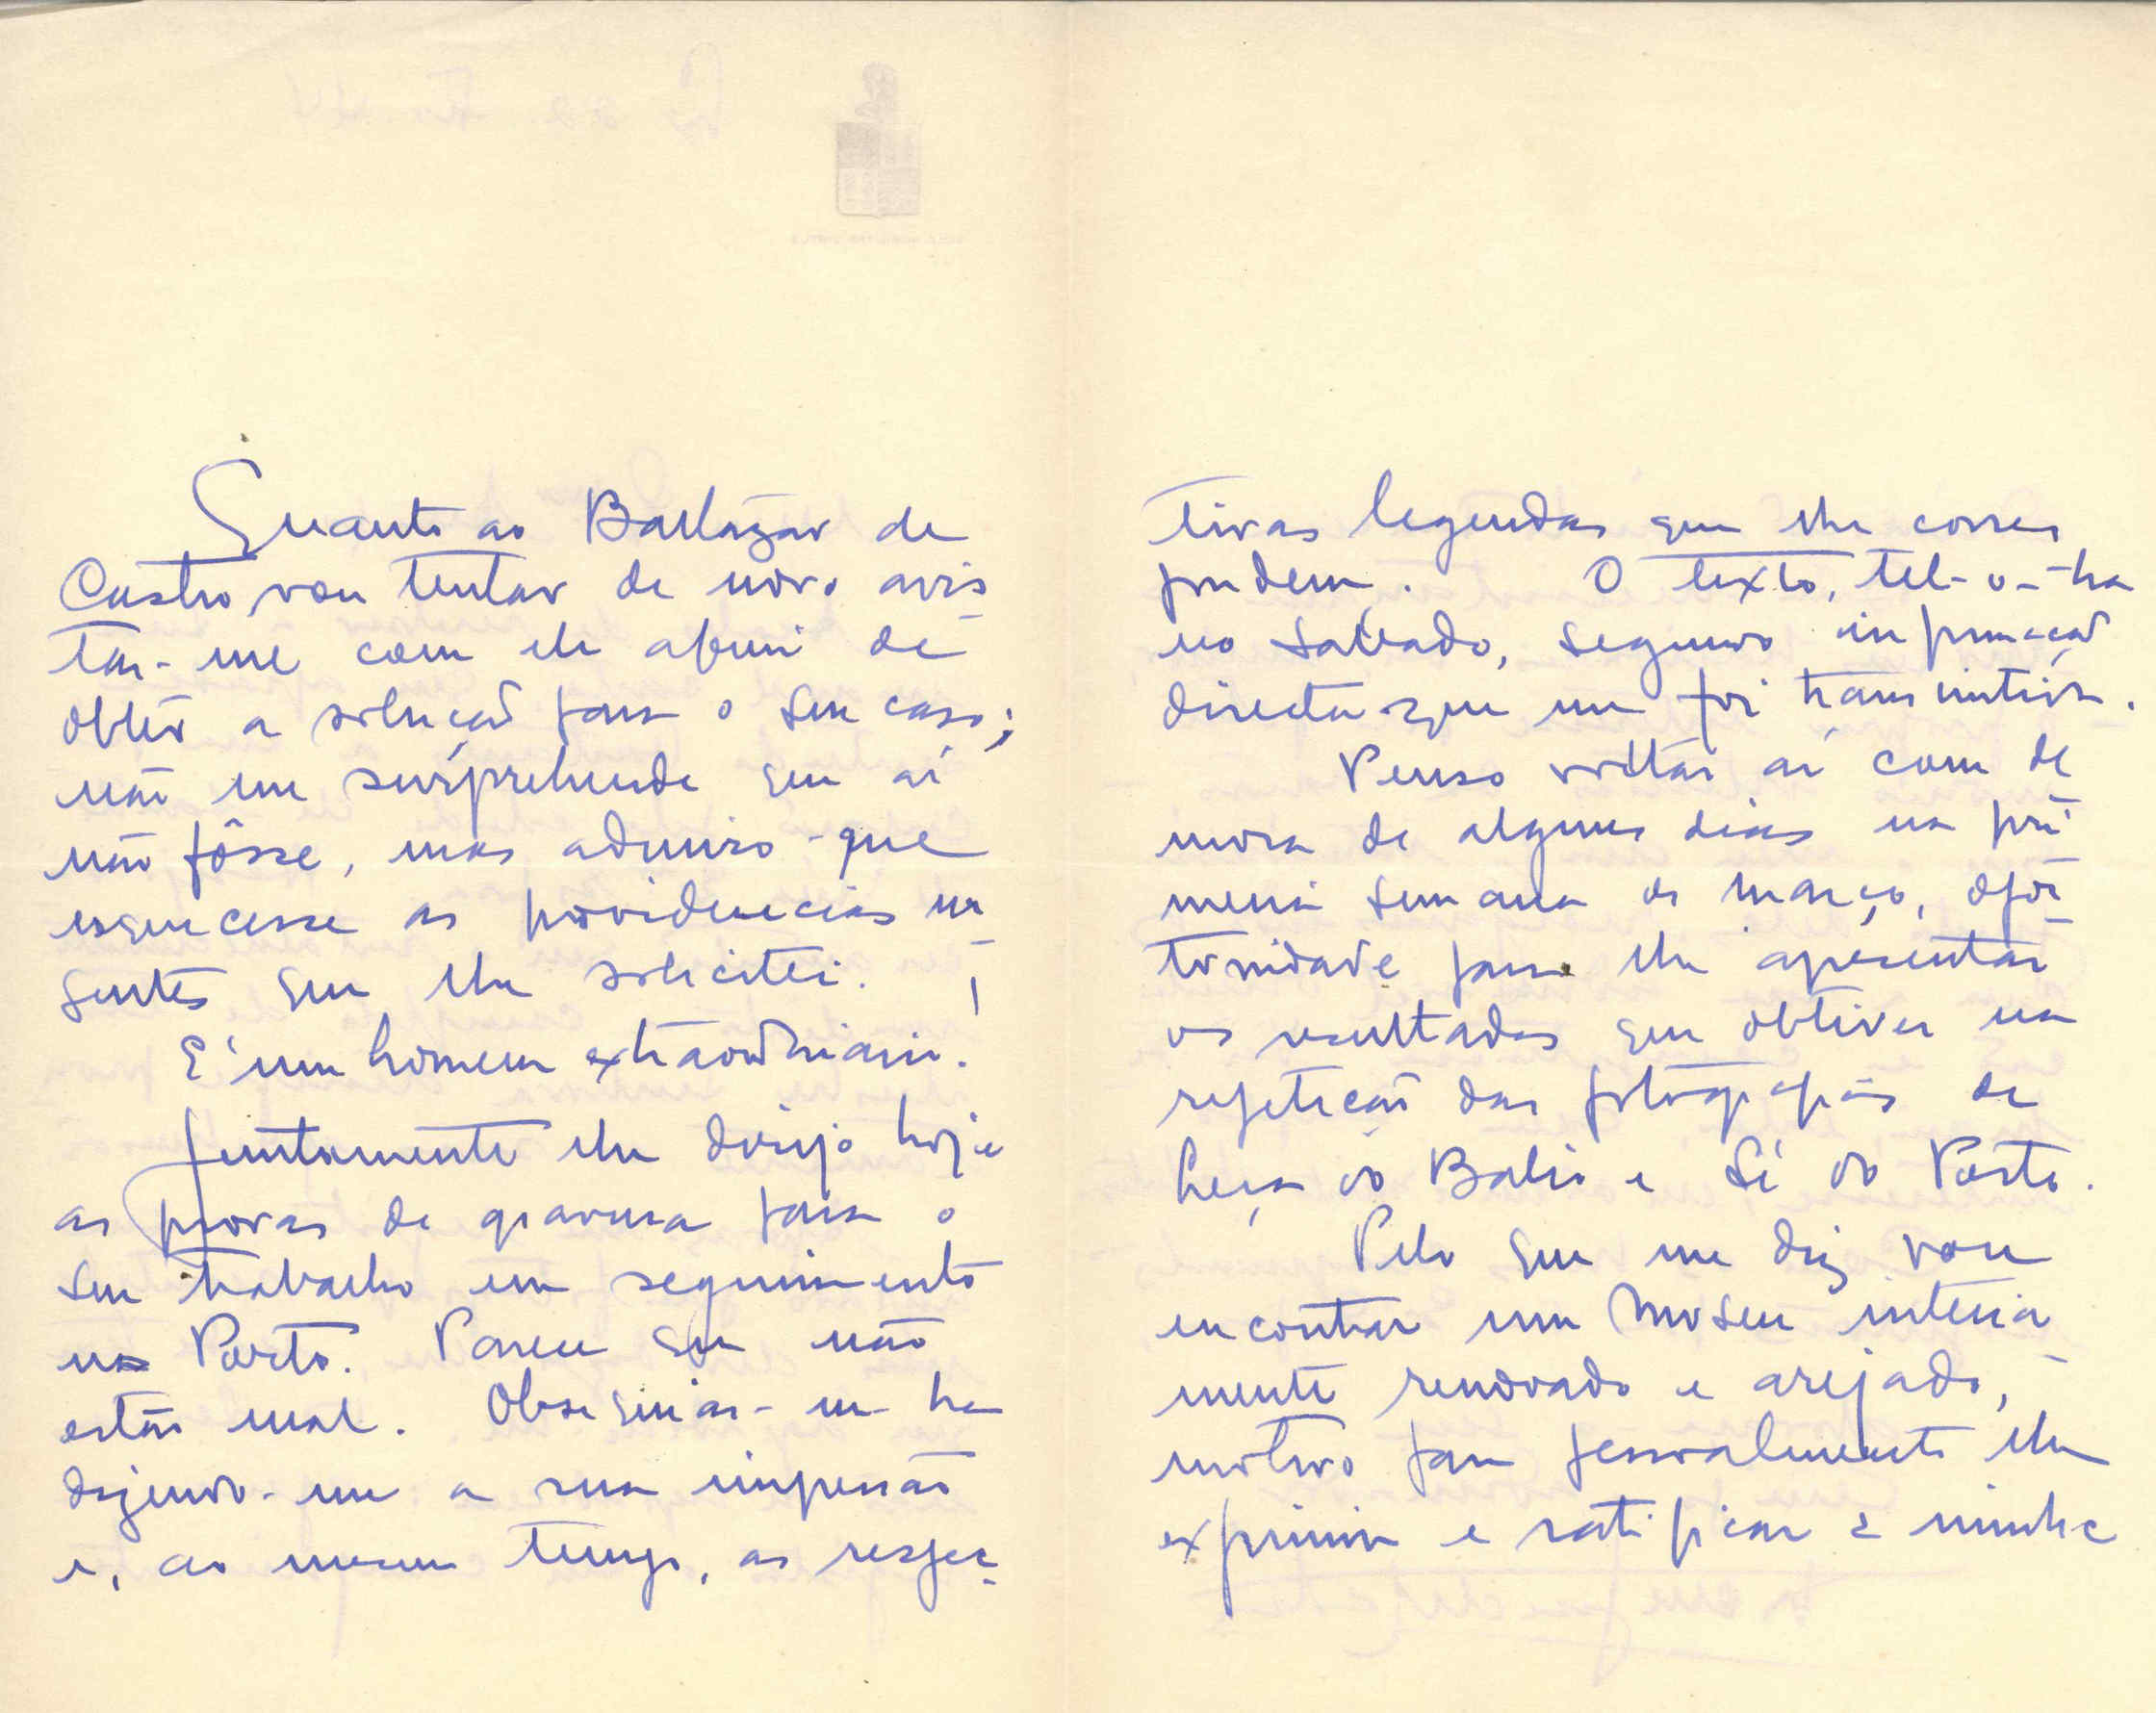 Quanto ao Baltazar de
Castro vou tentar de novo avis
tar-me com ele afim de
obter a solução para o seu caso;
não me surprehende que aí
não fôsse, mas admiro-que
esquecesse as providencias ur
gentes que lhe solicitei. !
E' um homem extraordinario.
Juntamente lhe dirijo hoje
as provas de gravura para o
seu trabalho em seguimento
no Porto. Parece que não
estão mal. Obsequiar-me-ha
dizendo-me a sua impressão
e, ao mesmo tempo, as respec
tivas legendas que lhe corres
pondem. O texto, tel-o-ha
no sabado, segundo informação
directa que me foi transmitida.
Penso voltar aí com de
mora de alguns dias na pri
meira semana de março, opor
tunidade para lhe apresentar
os resultados que obtiver na
repetição das fotografias de
Leça do Balio e Sé do Porto.
Pelo que me diz vou
encontrar um Museu inteira
mente renovado e arejado,
motivo para pessoalmente lhe
exprimir e ratificar a minha